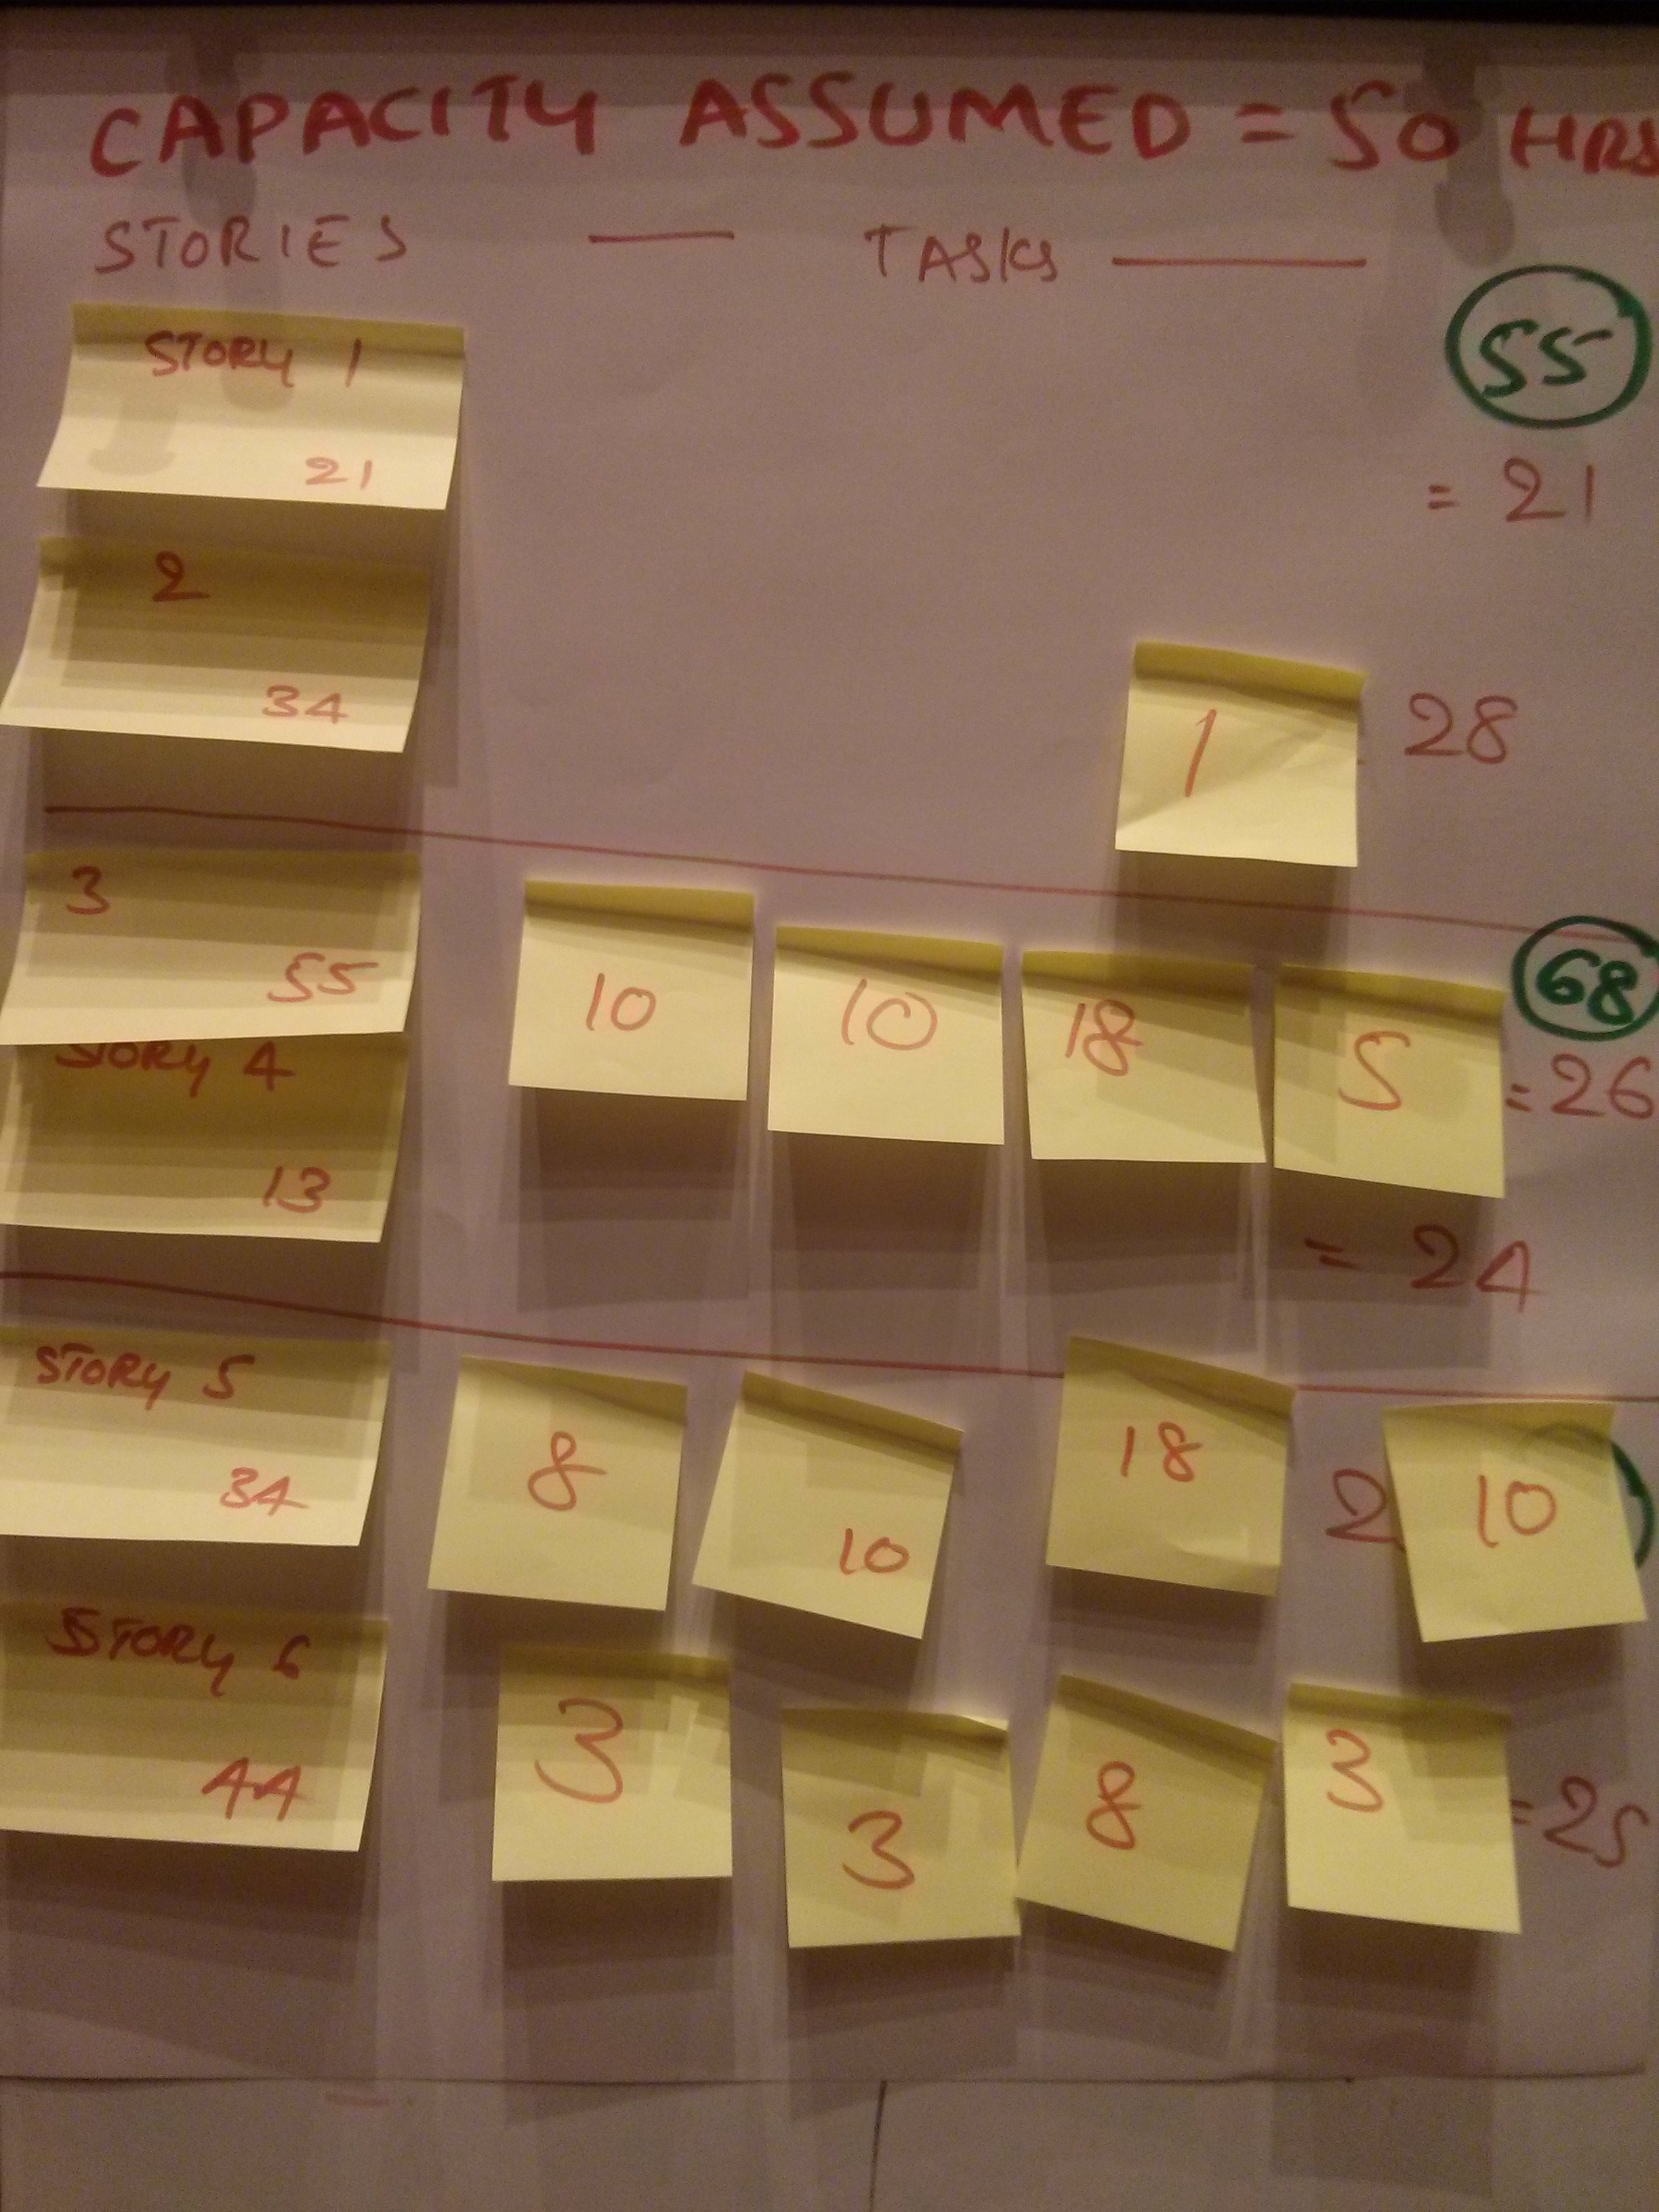 CAPACITY ASSUMED = 50 HRS
STORIES — TASKS —
55
STORY 1
21
= 21
2
34
1
28
3
55
10
10
18
5
68
= 26
STORY 4
13
= 24
STORY 5
34
8
10
18
2
10
STORY 6
44
3
3
8
3
= 25